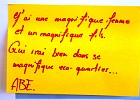 J'ai une magnifique femme
et un magnifique fils.
Qui irai bien dans se
magnifique eco-quartier...
ABE.